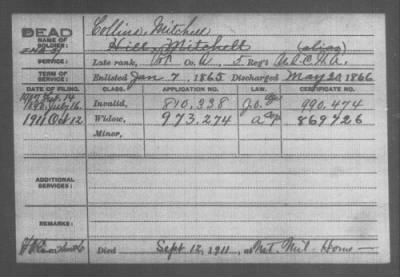 DEAD Collins, Mitchell
NAME OF SOLDIER: Hill, Mitchell (alias)
SERVICE: Late rank, Co. 5 Reg't C.H.A.
TERM OF SERVICE: Enlisted Jan. 7, 1865 Discharged May 20 1866
DATE OF FILING. CLASS. APPLICATION NO. LAW. CERTIFICATE NO.
July 16 Invalid, 810,338 990,474
1911 Oct 12 Widow, 973,274 869726
Minor,
ADDITIONAL SERVICES:
REMARKS:
Died Sept 12, 1911, at Mt. Mil. Home